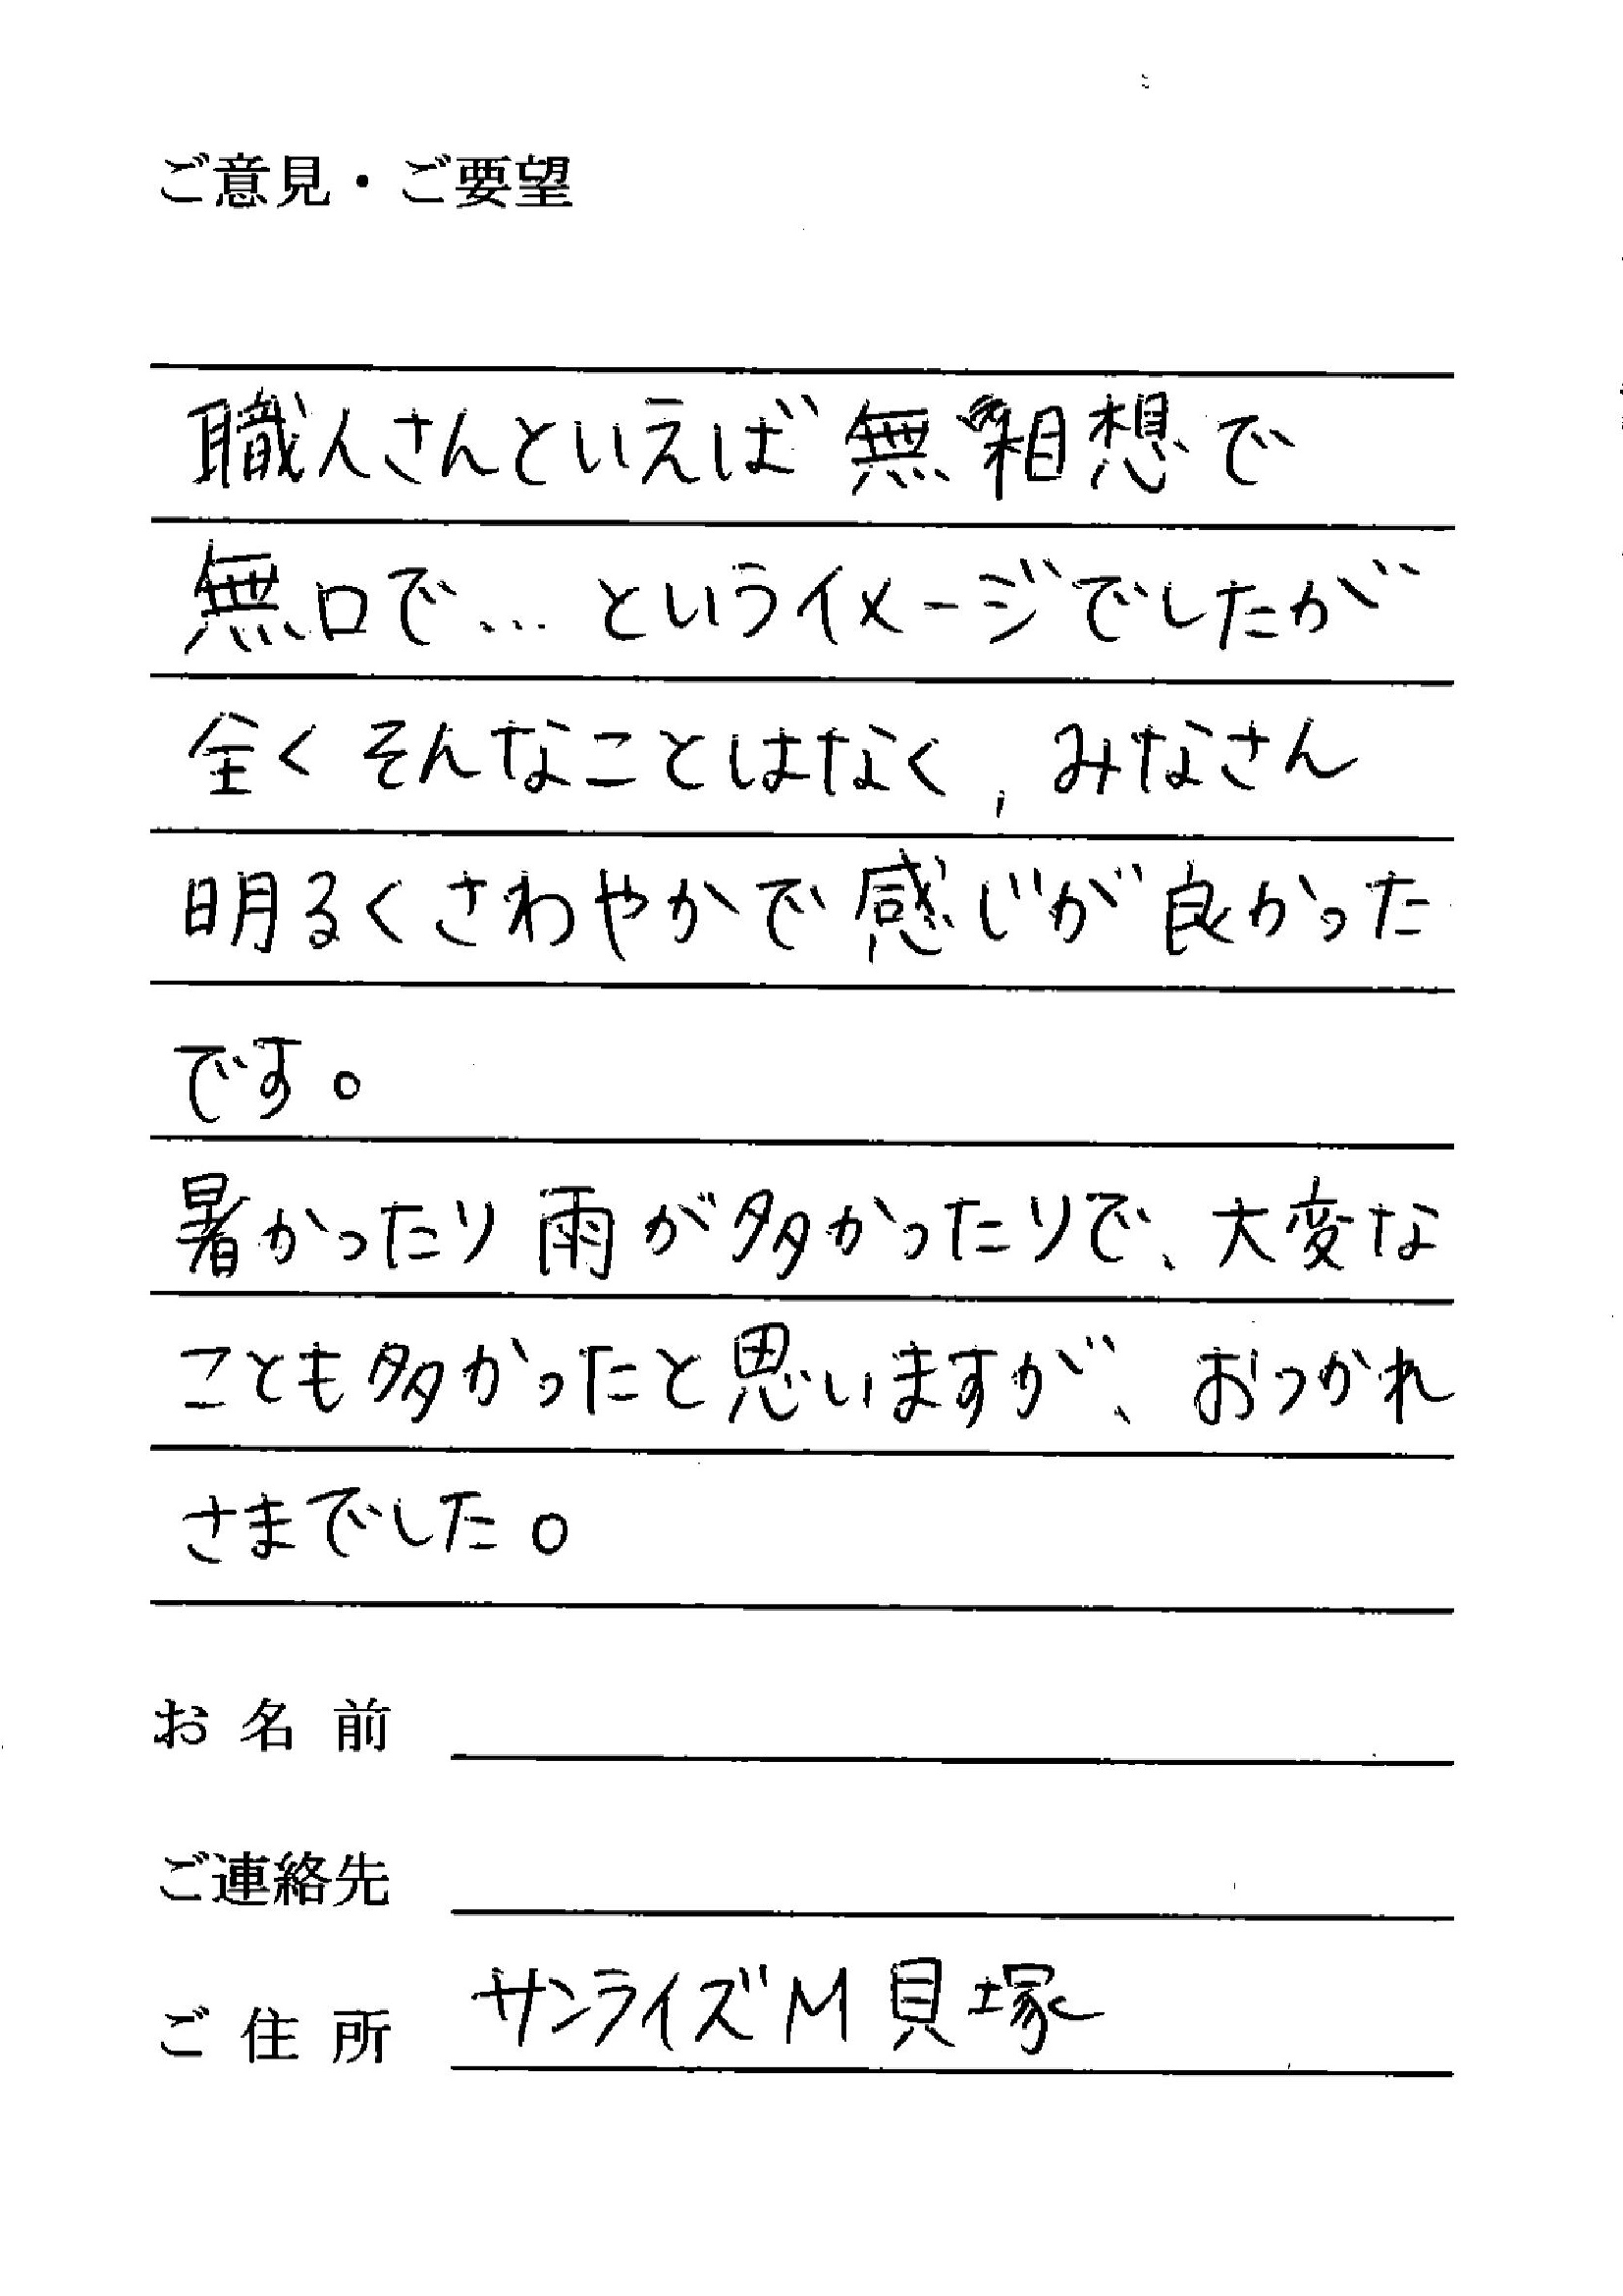 ご意見・ご要望
職人さんといえば無相想で
無口で…というイメージでしたが
全くそんなことはなく、みなさん
明るくさわやかで感じが良かった
です。
暑かったり雨が多かったりで、大変な
ことも多かったと思いますが、おつかれ
さまでした。
お名前
ご連絡先
ご住所 サンライズM貝塚